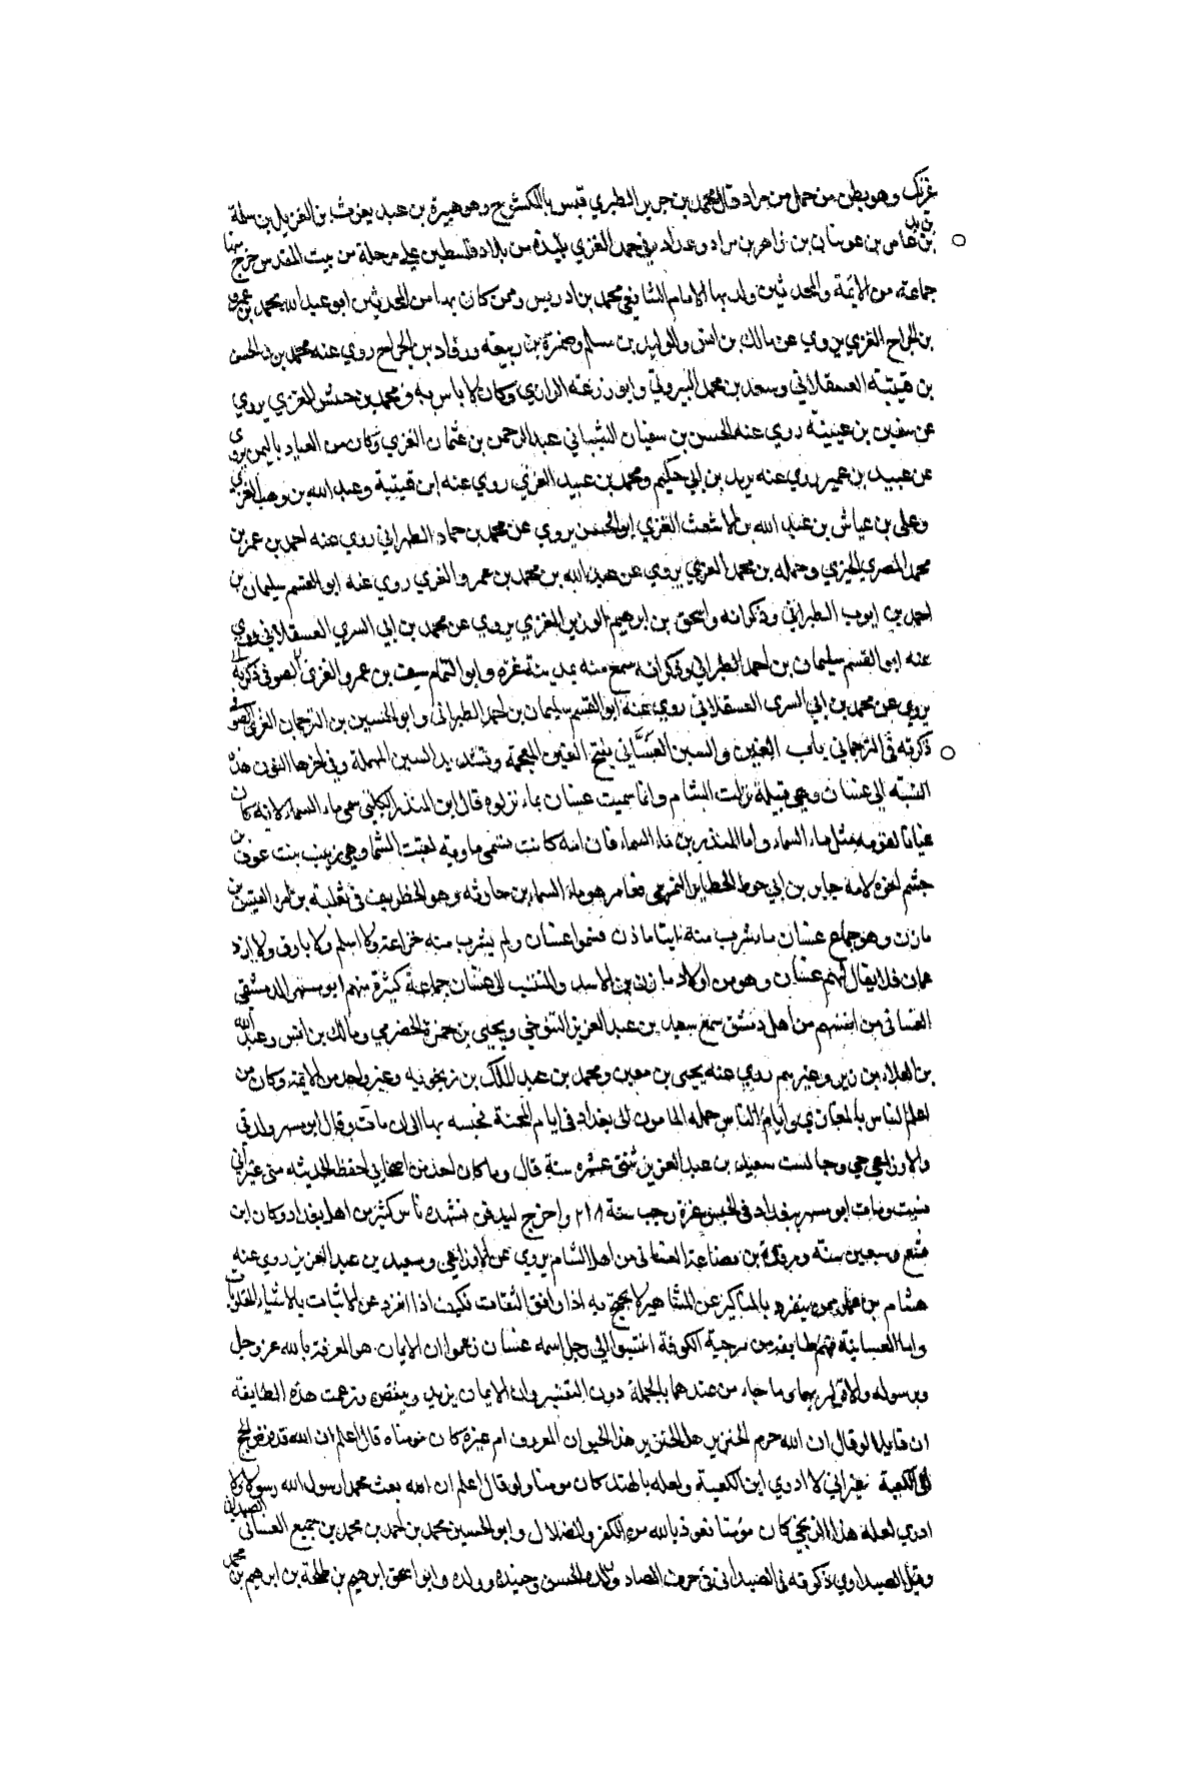 غزنك وهو بطن من جمل من مراد وقال محمد بن جرير الطبري قيس بالمكشوح وهو هبيرة بن عبد يغوث بن الغزيل بن سلمة
بن عامر بن عوسان بن زاهر بن مراد وعداده في جمل الغزي بليدة من بلاد فلسطين على مرحلة من بيت المقدس خرج منها
جماعة من الائمة والمحدثين ولد بها الامام الشافعي محمد بن ادريس وممن كان بها من المحدثين ابو عبد الله محمد بن عمرو
بن الجراح الغزي يروي عن مالك بن انس والوليد بن مسلم وضمرة بن ربيعة ورواد بن الجراح روي عنه محمد بن الحسن
بن قتيبة العسقلاني وسعد بن محمد البيروتي وابو زرعة الرازي وكان لا باس به ومحمد بن حسش الغزي يروي
عن سفين بن عيينة روي عنه الحسن بن سفيان الشيباني عبد الرحمن بن عثمان الغزي وكان من العباد باليمن يروي
عن عبيد بن عمير روي عنه يزيد بن ابي حكيم ومحمد بن عبيد الغزي روي عنه ابن قتيبة وعبد الله بن وهب الغزي
وعلى بن عياش بن عبد الله بن الاشعث الغزي ابو الحسن يروي عن محمد بن حماد الطهراني روي عنه احمد بن عمر بن
محمد المصري الجيزي وحمله بن محمد الغزي يروي عن عبد الله بن محمد بن عمرو الغزي روي عنه ابو القسم سليمان بن
احمد بن ايوب الطبراني وذكر انه واسحق بن ابرهيم الوزير الغزي يروي عن محمد بن ابي السري العسقلاني روي
عنه ابو القسم سليمان بن احمد الطبراني وذكر انه سمع منه بمدينة غزه وابو التمام سيف بن عمرو الغزي الصوفي ذكر انه
يروي عن محمد بن ابي السرى العسقلاني روي عنه ابو القسم سليمان بن احمد الطبراني وابو الحسين بن الترجمان الغزي الصوفي
ذكرته في الترجماني باب الغين والسين الغساني بفتح الغين المعجمة وتشديد السين المهملة وفي اخرها النون هذه
النسبة الى غسان وهي قبيلة نزلت الشام وانما سميت غسان بماء نزلوه قال ابن المنذر الكلبي سمي ماء السماء لانه كان
غياثا لقومه مثل ماء السماء واما المنذر بن ماء السماء فان امه كانت تسمى ماوية لعبت الشما وهي زينب بنت عوف بن
جشم اخوه لامه جابر بن ابي حوط الحظاير النمري فعامر هو ماء السماء بن حارثه وهو الغطريف بن ثعلبة بن امرئ القيس بن
مازن وهو جماع غسان ماء شرب منه بنو مازن فسموا غسان ولم يشرب منه خزاعة ولا اسلم ولا بارق ولا ازد
عمان فلا يقال لهم غسان وهو من اولاد مازن بن الاسد والمنتسب الى غسان جماعة كثيرة منهم ابو مسهر الدمشقي
الغساني من انفسهم من اهل دمشق سمع سعيد بن عبد العزيز التنوخي ويحيى بن حمزة الحضرمي ومالك بن انس وعبد الله
بن العلاء بن زبر وغيرهم روي عنه يحيى بن معين ومحمد بن عبد الملك بن زنجويه وغير واحد من الائمة وكان من
اعلم الناس بالمغازي وايام الناس حمله المامون الى بغداد في ايام المحنة فحبسه بها الى ان مات وقال ابو مسهر ولد لي
والاوزاعي حي وجالست سعيد بن عبد العزيز ثنتي عشره سنة قال وما كان احد من اصحابي احفظ لحديثه مني غير اني
نسيت ومات ابو مسهر ببغداد في الحبس غرة رجب سنة ٢١٨ واخرج ليدفن فشهده ناس كثير من اهل بغداد وكان ابن
تسع وسبعين سنة ومروان بن قضاعة الغساني من اهل الشام يروي عن الاوزاعي وسعيد بن عبد العزيز روي عنه
هشام بن عمار ممن ينفرد بالمناكير عن المشاهير لا يحتج به اذا وافق الثقات فكيف اذا انفرد عن الاثبات بالاشياء المقلوبات
واما الغسانية فهم طايفة من مرجية الكوفة انتسبوا الى رجل اسمه غسان زعموا ان الايمان هو المعرفة بالله عز وجل
وبرسوله والاقرار بهما وما جاء من عندهما بالجملة دون التفسير وان الايمان يزيد وينقص وزعمت هذه الطايفة
ان قايلا لو قال ان الله حرم الخنزير هل الخنزير هذا الحيوان المعروف ام غيره كان مومنا ولو قال اعلم ان الله قد فرض الحج
الى الكعبة غير اني لا ادري اين الكعبة ولعله بالهند كان مومنا ولو قال اعلم ان الله بعث محمدا رسول الله رسولا ولا
ادري لعله هذا الزنجي كان مؤمنا نعوذ بالله من الكفر والضلال وابو الحسين محمد بن احمد بن محمد بن جميع الغساني الصيداني
وقيل الصيداوي ذكرته في الصيداني في حرف الصاد وولده الحسن وحفيده وولده وابو اسحق ابرهيم بن طلحة بن ابرهيم بن محمد